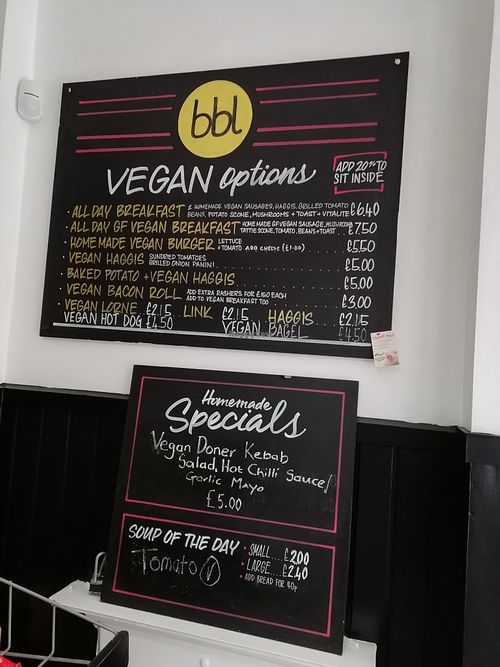 bbl
VEGAN options
ADD 20% TO
SIT INSIDE
ALL DAY BREAKFAST 2 HOMEMADE VEGAN SAUSAGES, HAGGIS, GRILLED TOMATO £6.40
BEANS, POTATO SCONE, MUSHROOMS + TOAST + VITALITE
ALL DAY GF VEGAN BREAKFAST HOMEMADE GF VEGAN SAUSAGE, MUSHROOM £7.50
TATTIE SCONE, TOMATO, BEANS + TOAST
HOMEMADE VEGAN BURGER LETTUCE £5.50
+ TOMATO ADD CHEESE (£1.00)
VEGAN HAGGIS SUNDRIED TOMATOES £5.00
GRILLED ONION PANINI
BAKED POTATO + VEGAN HAGGIS £5.00
VEGAN BACON ROLL ADD EXTRA RASHERS FOR £1.50 EACH £3.00
ADD TO VEGAN BREAKFAST TOO
VEGAN LORNE £2.15 LINK £2.15 HAGGIS £2.15
VEGAN HOT DOG £4.50 VEGAN BAGEL £4.50
Homemade
Specials
Vegan Doner Kebab
Salad, Hot Chilli Sauce/
Garlic Mayo
£5.00
SOUP OF THE DAY
Tomato V
SMALL.... £2.00
LARGE.... £2.40
ADD BREAD FOR 40p